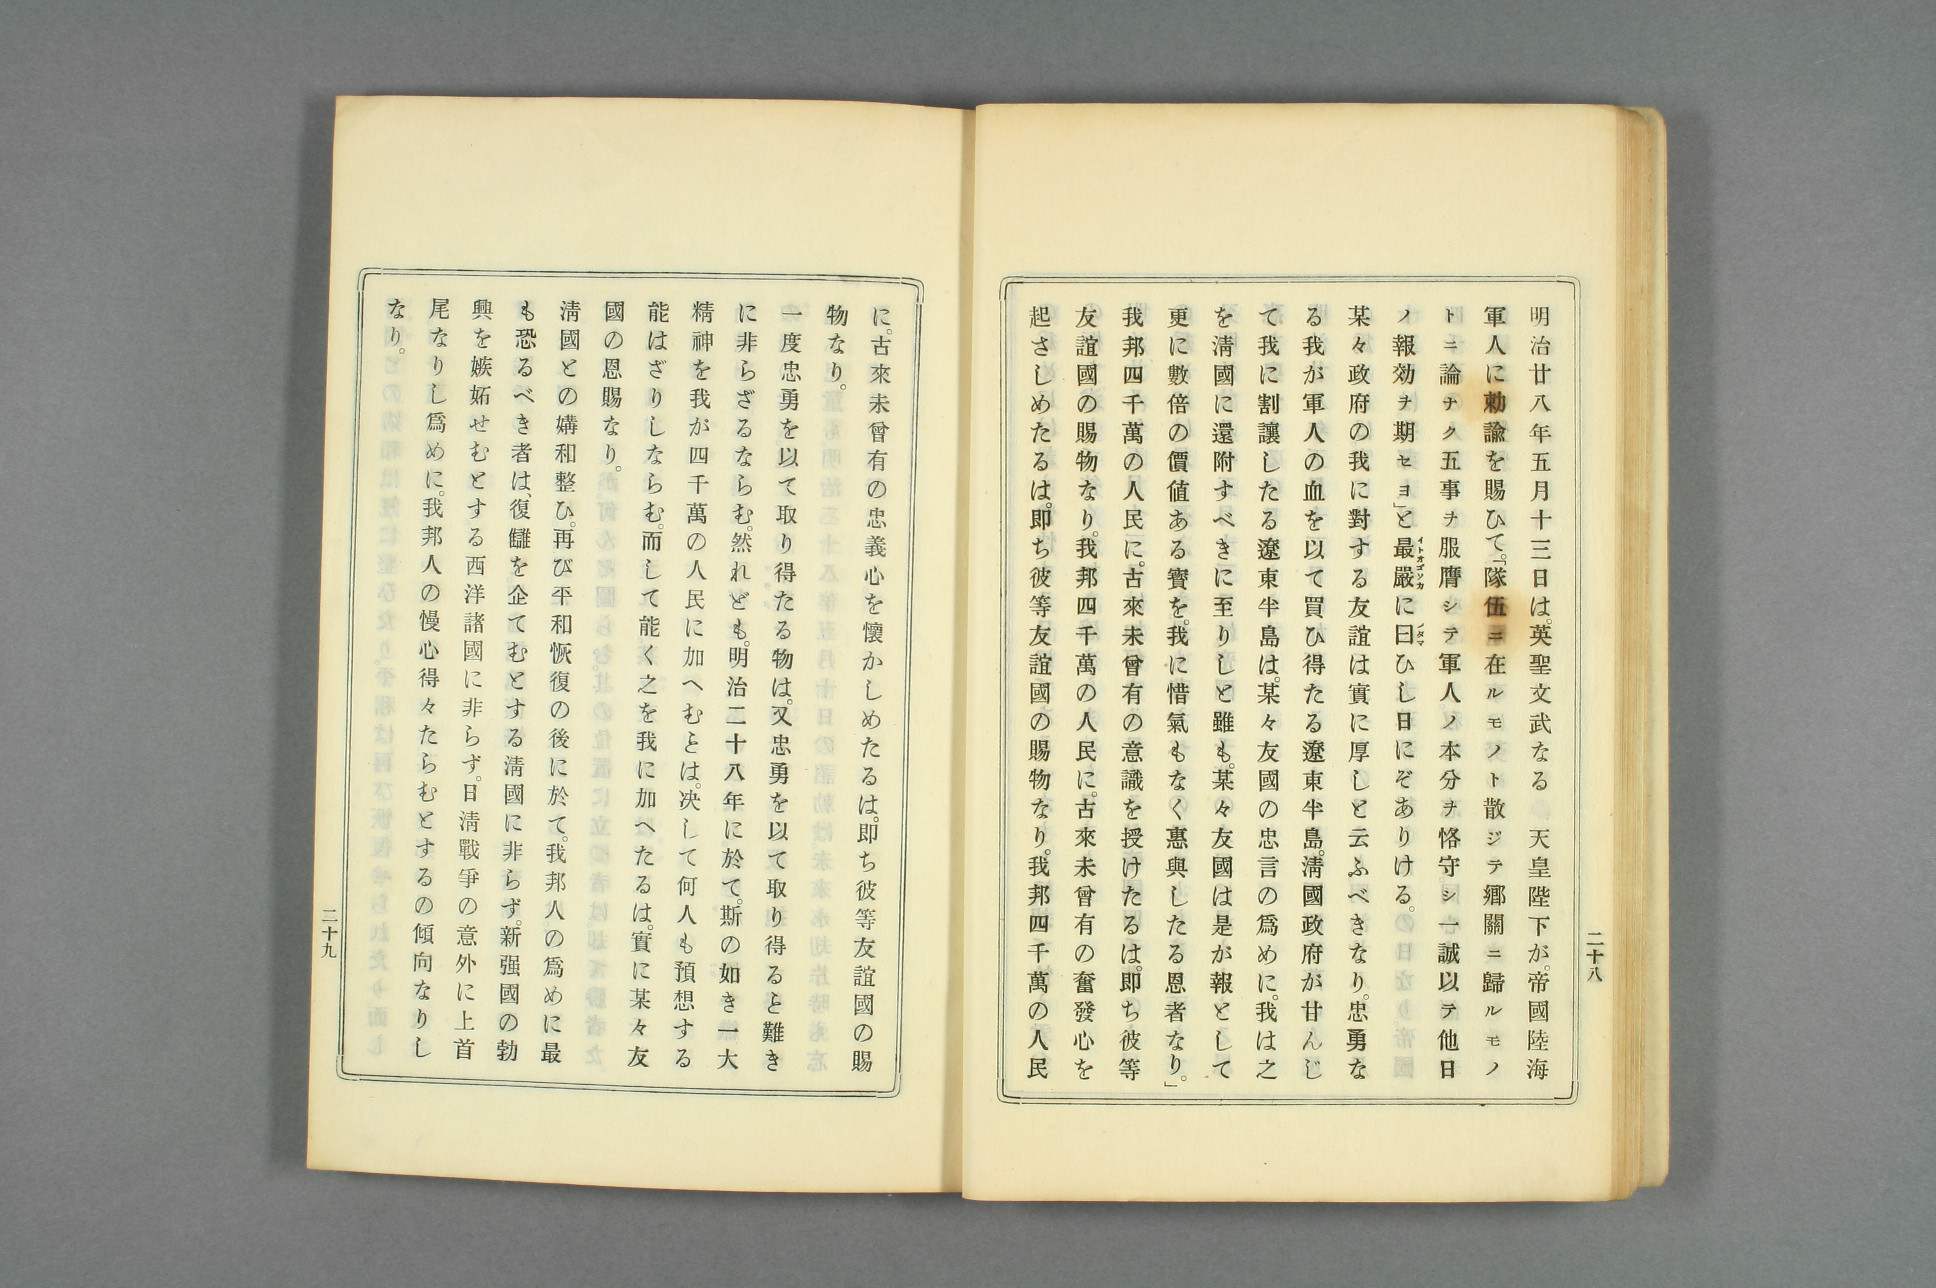 二十八
明治廿八年五月十三日は。英聖文武なる　天皇陛下が。帝國陸海
軍人に勅諭を賜ひて。「隊伍ニ在ルモノト散ジテ鄉關ニ歸ルモノ
トニ論ナク五事ヲ服膺シテ軍人ノ本分ヲ恪守シ一誠以テ他日
ノ報効ヲ期セヨ」と最嚴イトオゴソカに曰ノタマひし日にぞありける。
某々政府の我に對する友誼は實に厚しと云ふべきなり。忠勇な
る我が軍人の血を以て買ひ得たる遼東半島。淸國政府が甘んじ
て我に割讓したる遼東半島は。某々友國の忠言の爲めに。我は之
を淸國に還附すべきに至りしと雖も。某々友國は是が報として
更に數倍の價値ある寳を。我に惜氣もなく惠與したる恩者なり。」
我邦四千萬の人民に。古來未曾有の意識を授けたるは。即ち彼等
友誼國の賜物なり。我邦四千萬の人民に。古來未曾有の奮發心を
起さしめたるは。即ち彼等友誼國の賜物なり。我邦四千萬の人民
に。古來未曾有の忠義心を懷かしめたるは。即ち彼等友誼國の賜
物なり。
一度忠勇を以て取り得たる物は。又忠勇を以て取り得ると難き
に非らざるならむ。然れども。明治二十八年に於て。斯の如き一大
精神を我が四千萬の人民に加へむとは。决して何人も預想する
能はざりしならむ。而して能く之を我に加へたるは。實に某々友
國の恩賜なり。
淸國との媾和整ひ。再び平和恢復の後に於て。我邦人の爲めに最
も恐るべき者は、復讎を企てむとする淸國に非らず。新强國の勃
興を嫉妬せむとする西洋諸國に非らず。日淸戰爭の意外に上首
尾なりし爲めに。我邦人の慢心得々たらむとするの傾向なりし
なり。
二十九